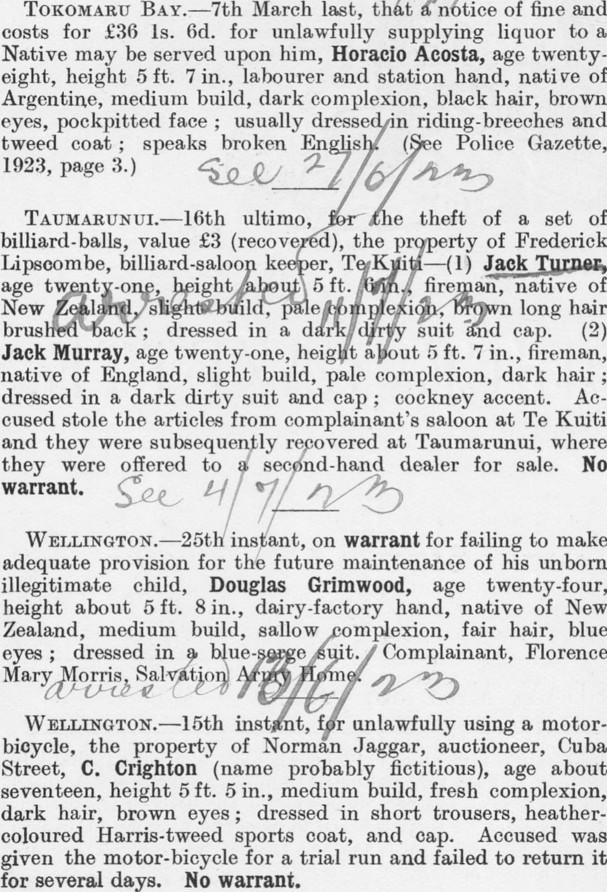 TOKOMARU BAY.—7th March last, that a notice of fine and
costs for £36 1s. 6d. for unlawfully supplying liquor to a
Native may be served upon him, Horacio Acosta, age twenty-
eight, height 5 ft. 7 in., labourer and station hand, native of
Argentine, medium build, dark complexion, black hair, brown
eyes, pockpitted face ; usually dressed in riding-breeches and
tweed coat ; speaks broken English. (See Police Gazette,
1923, page 3.)
See 27/6/23
TAUMARUNUI.—16th ultimo, for the theft of a set of
billiard-balls, value £3 (recovered), the property of Frederick
Lipscombe, billiard-saloon keeper, Te Kuiti—(1) Jack Turner,
age twenty-one, height about 5 ft. 6 in., fireman, native of
New Zealand, slight build, pale complexion, brown long hair
brushed back ; dressed in a dark dirty suit and cap. (2)
arrested 4/7/23
Jack Murray, age twenty-one, height about 5 ft. 7 in., fireman,
native of England, slight build, pale complexion, dark hair ;
dressed in a dark dirty suit and cap ; cockney accent. Ac-
cused stole the articles from complainant's saloon at Te Kuiti
and they were subsequently recovered at Taumarunui, where
they were offered to a second-hand dealer for sale. No
warrant.
See 4/7/23
WELLINGTON.—25th instant, on warrant for failing to make
adequate provision for the future maintenance of his unborn
illegitimate child, Douglas Grimwood, age twenty-four,
height about 5 ft. 8 in., dairy-factory hand, native of New
Zealand, medium build, sallow complexion, fair hair, blue
eyes ; dressed in a blue-serge suit. Complainant, Florence
Mary Morris, Salvation Army Home.
arrested 13/6/23
WELLINGTON.—15th instant, for unlawfully using a motor-
bicycle, the property of Norman Jaggar, auctioneer, Cuba
Street, C. Crighton (name probably fictitious), age about
seventeen, height 5 ft. 5 in., medium build, fresh complexion,
dark hair, brown eyes ; dressed in short trousers, heather-
coloured Harris-tweed sports coat, and cap. Accused was
given the motor-bicycle for a trial run and failed to return it
for several days. No warrant.